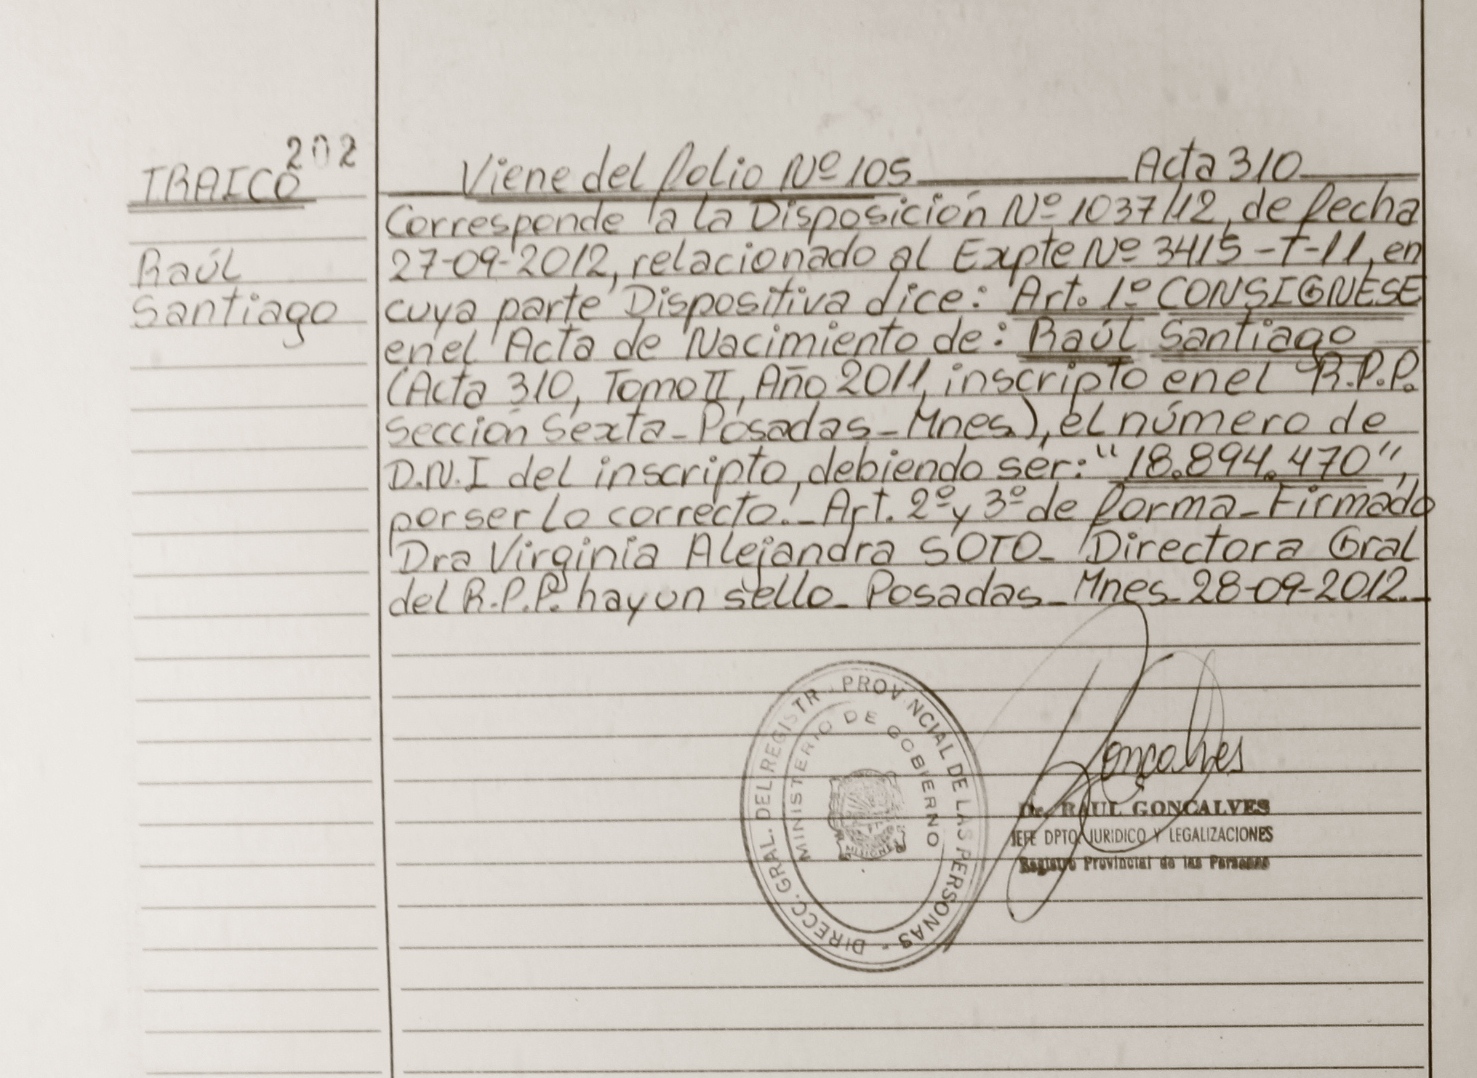 202
IRAICO
Raúl
Santiago
Viene del folio Nº 105 Acta 310
Corresponde a la Disposición Nº 1037/12, de fecha
27-09-2012, relacionado al Expte Nº 3415-T-11, en
cuya parte Dispositiva dice: Art. 1º CONSIGNESE
en el Acta de Nacimiento de: Raúl Santiago
(Acta 310, Tomo II, Año 2011, inscripto en el R.P.P.
Sección Sexta-Posadas-Mnes), el número de
D.N.I del inscripto, debiendo ser: "18.894.470",
por ser lo correcto. Art. 2º y 3º de forma-Firmado
Dra Virginia Alejandra SOTO- Directora Gral
del R.P.P. hay un sello- Posadas-Mnes-28-09-2012.-
DIRECC. GRAL. DEL REGISTR PROVINCIAL DE LAS PERSONAS -
MINISTERIO DE GOBIERNO
MISIONES
Goncalves
Dr. RAUL GONCALVES
JEFE DPTO. JURIDICO Y LEGALIZACIONES
Registro Provincial de las Personas